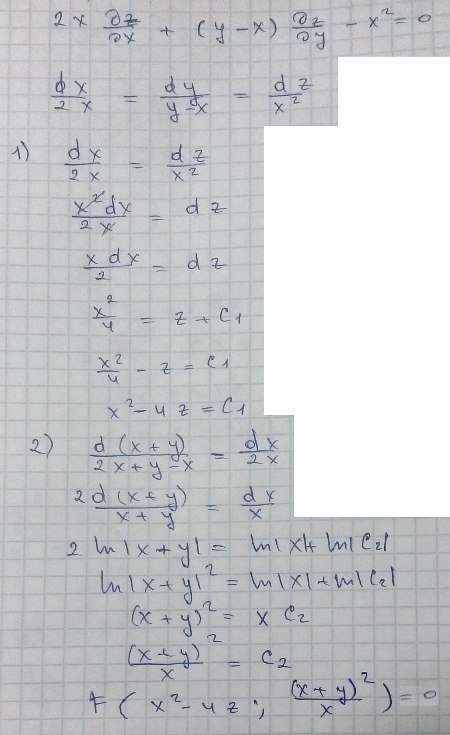 2x ∂z/∂x + (y-x) ∂z/∂y - x² = 0
dx/2x = dy/y-x = dz/x²
1) dx/2x = dz/x²
x²dx/2x = dz
x dx/2 = dz
x²/4 = z + C1
x²/4 - z = C1
x² - 4z = C1
2) d(x+y)/2x+y-x = dx/2x
2d(x+y)/x+y = dx/x
2 ln|x+y| = ln|x| + ln|C2|
ln|x+y|² = ln|x| + ln|C2|
(x+y)² = x C2
(x+y)²/x = C2
F(x²-4z; (x+y)²/x) = 0